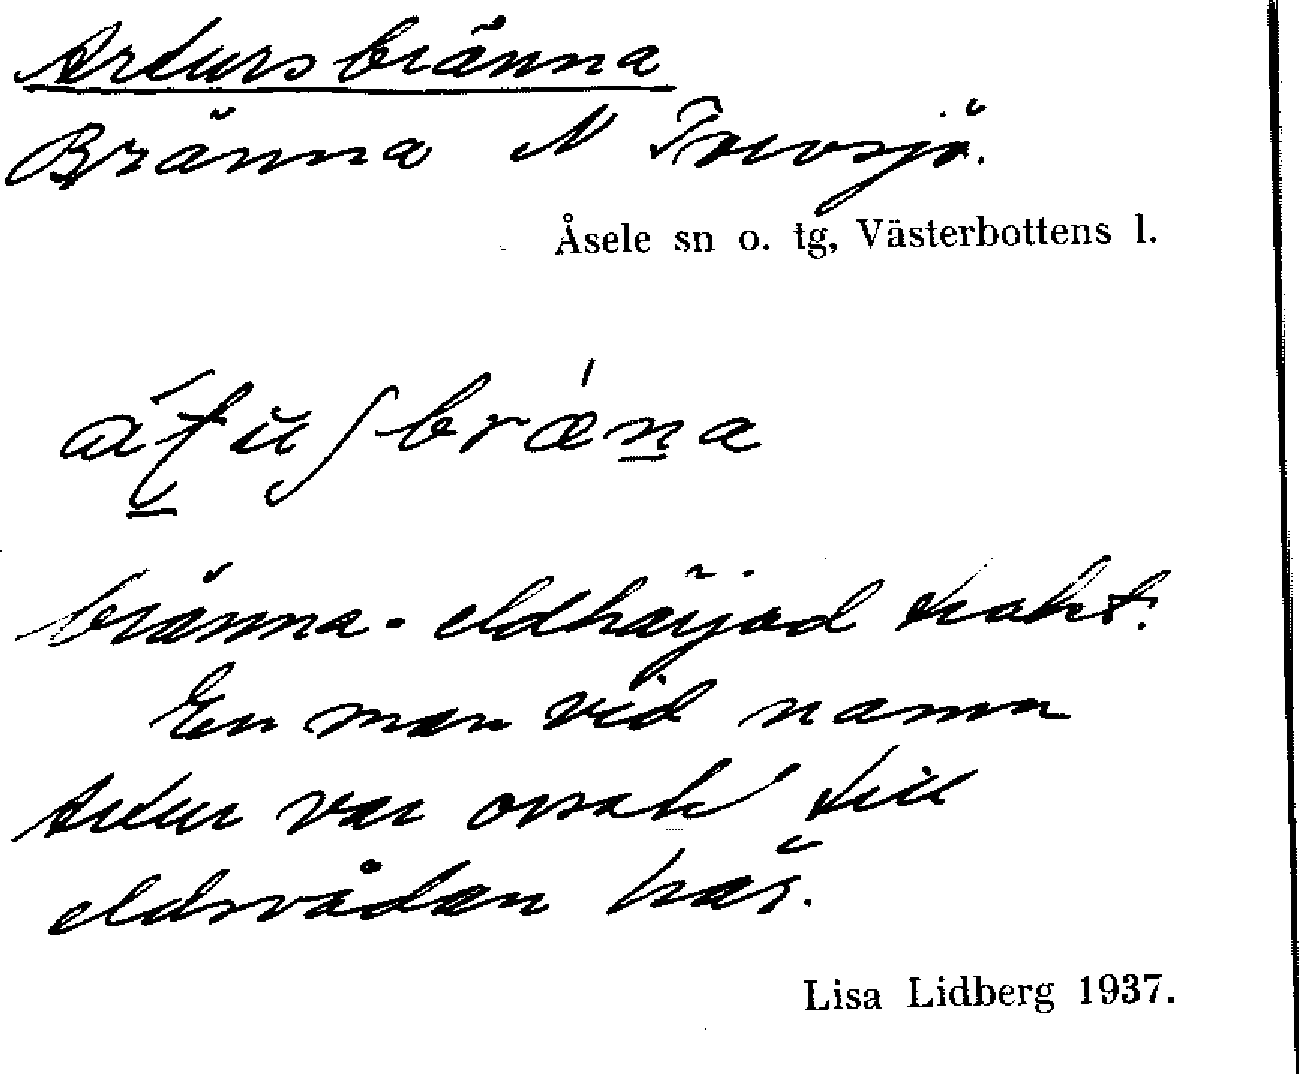 Artursbränna
Bränna N Tvovsjö.
Åsele sn o. tg, Västerbottens l.
bränna - eldhärjad trakt.
En man vid namn
Artur var orsak till
eldsvådan här.
Lisa Lidberg 1937.